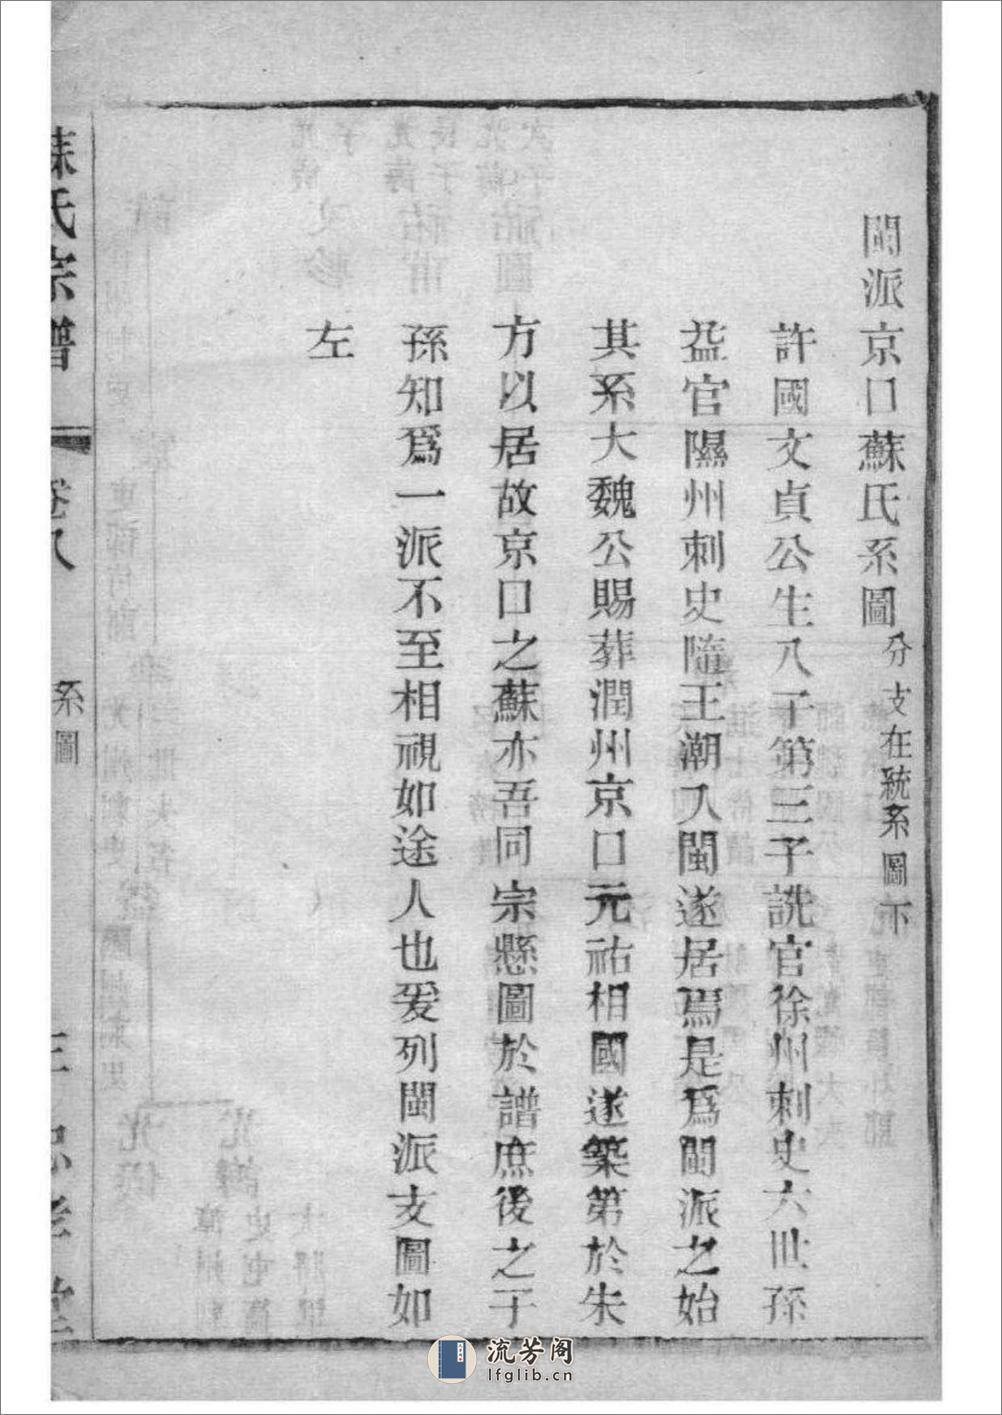 閩派京口蘇氏系圖 分支在統系圖下
許國文貞公生八子第三子詵官徐州刺史六世孫
益官隰州刺史隨王潮入閩遂居焉是爲閩派之始
其系大魏公賜葬潤州京口元祐相國遂築第於朱
方以居故京口之蘇亦吾同宗懸圖於譜庶後之子
孫知爲一派不至相視如途人也爰列閩派支圖如
左
蘇氏宗譜 卷八 系圖
流芳阁
lfglib.cn